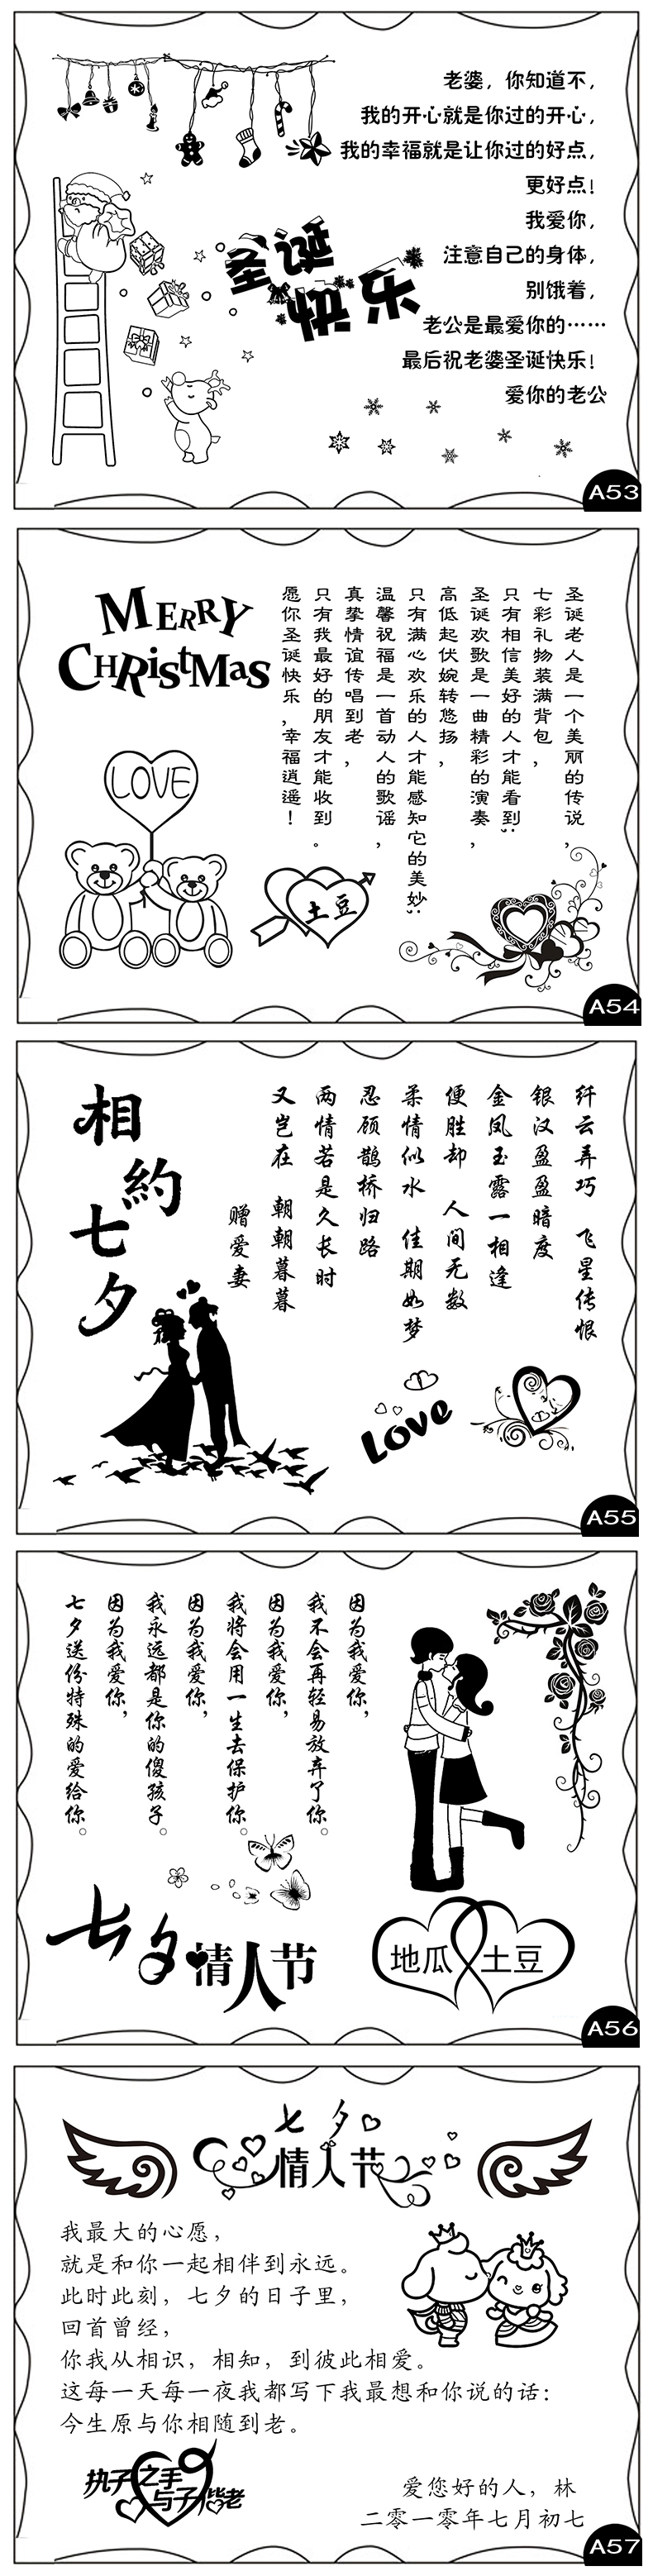 老婆，你知道不，
我的开心就是你过的开心，
我的幸福就是让你过的好点，
更好点！
我爱你，
注意自己的身体，
别饿着，
老公是最爱你的……
最后祝老婆圣诞快乐！
爱你的老公
圣诞
快乐
A53
MERRY
CHRistMas
LOVE
圣诞老人是一个美丽的传说，
七彩礼物装满背包，
只有相信美好的人才能看到；
圣诞欢歌是一曲精彩的演奏，
高低起伏婉转悠扬，
只有满心欢乐的人才能感知它的美妙；
温馨祝福是一首动人的歌谣，
真挚情谊传唱到老，
只有我最好的朋友才能收到。
愿你圣诞快乐，幸福逍遥！
土豆
A54
相約七夕
纤云弄巧 飞星传恨
银汉盈盈暗度
金凤玉露一相逢
便胜却 人间无数
柔情似水 佳期如梦
忍顾鹊桥归路
两情若是久长时
又岂在 朝朝暮暮
赠爱妻
Love
A55
因为我爱你，
我不会再轻易放弃了你。
因为我爱你，
我将会用一生去保护你。
因为我爱你，
我永远都是你的傻孩子。
因为我爱你，
七夕送份特殊的爱给你。
七夕情人节
地瓜 土豆
A56
七夕
情人节
我最大的心愿，
就是和你一起相伴到永远。
此时此刻，七夕的日子里，
回首曾经，
你我从相识，相知，到彼此相爱。
这每一天每一夜我都写下我最想和你说的话：
今生原与你相随到老。
执子之手
与子偕老
爱您好的人，林
二零一零年七月初七
A57